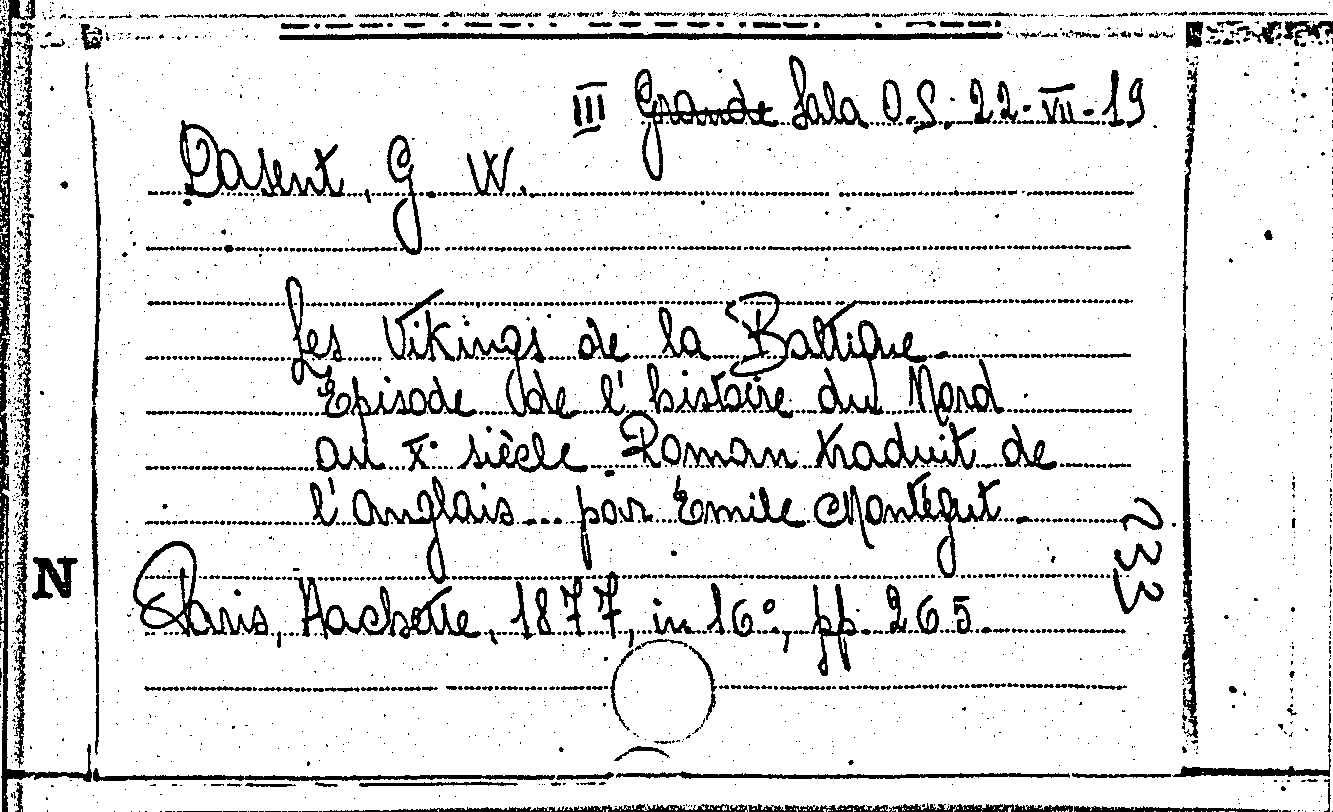 III Grande Sala O.S. 22-VII-19
Dasent, G. W.
Les Vikings de la Baltique.
Episode de l'histoire du Nord
au X° siècle. Roman traduit de
l'anglais... par Emile Montégut.
233
N
Paris, Hachette, 1877, in 16°, pp. 265.